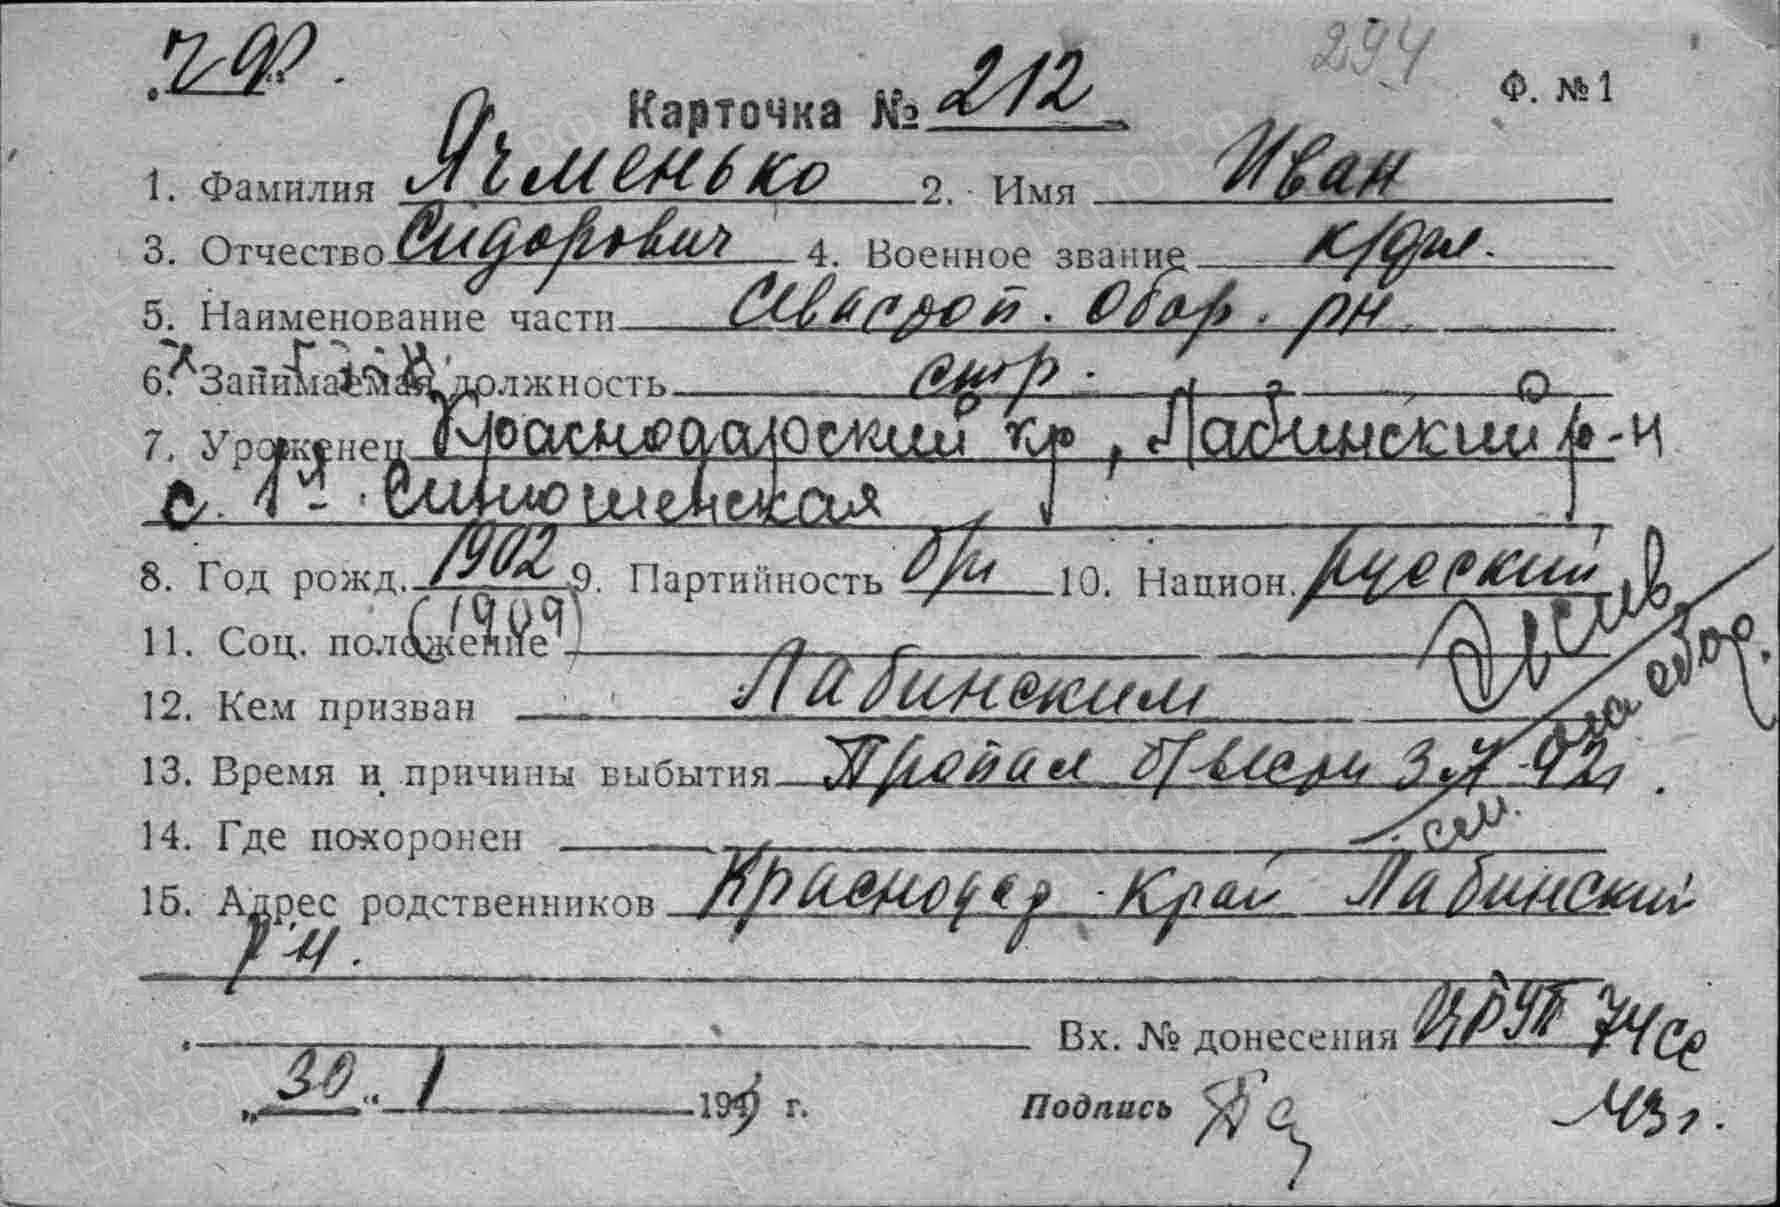 ч ф.
294
Ф. №1
Карточка № 212
1. Фамилия Ячменько 2. Имя Иван
3. Отчество Сидорович 4. Военное звание к/фл.
5. Наименование части Севастоп. Обор. рн
6. Занимаемая должность стр.
7. Уроженец Краснодарский кр, Лабинский р-н
с. 1я Синюшенская
8. Год рожд. 1902 9. Партийность б/п 10. Национ. русский
(1909)
11. Соц. положение
12. Кем призван Лабинским
на обор.
13. Время и причины выбытия Пропал б/вести 3.7.42г.
см.
14. Где похоронен
15. Адрес родственников Краснодар. Край Лабинский
рн.
Вх. № донесения 74сс
„30“ 1 194 г. Подпись
43г.